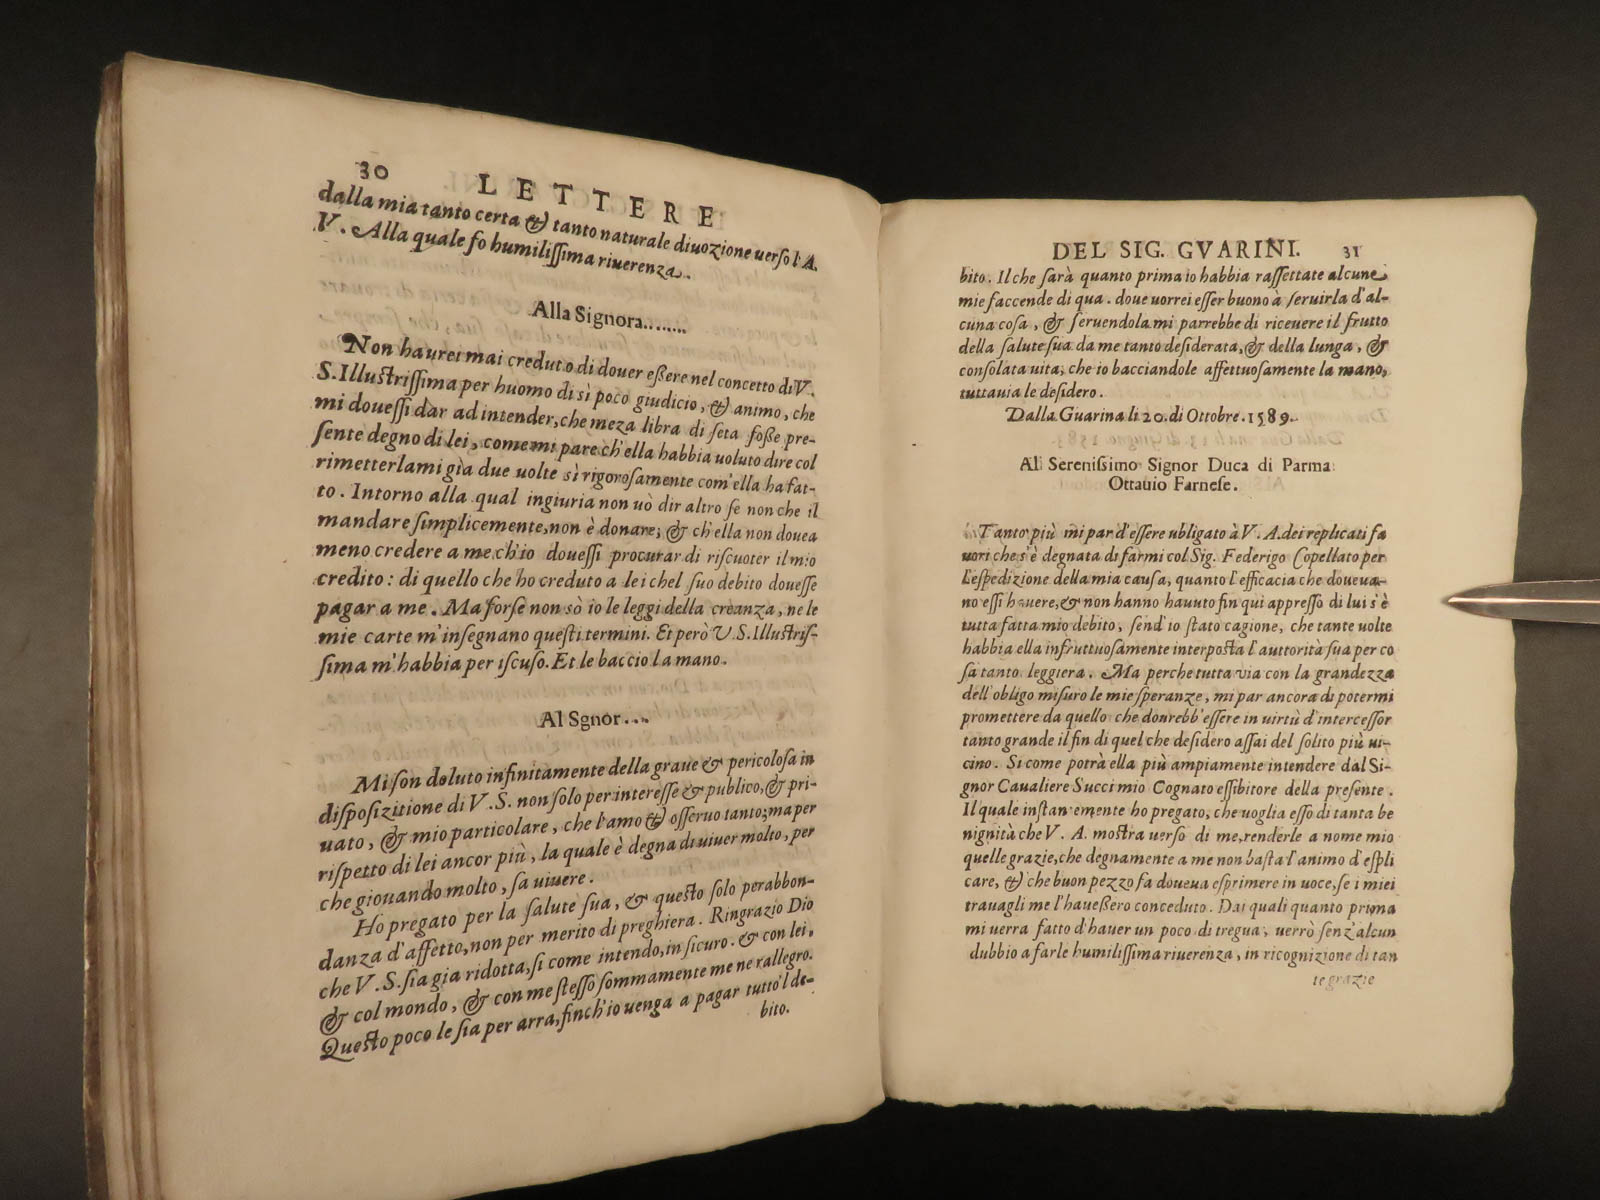 30 LETTERE
dalla mia tanto certa & tanto naturale diuozione uerso l'A.
V. Alla quale fo humilissima riuerenza.
Alla Signora........
Non haurei mai creduto di douer eßere nel concetto di V.
S. Illustrissima per huomo di sì poco giudicio, & animo, che
mi douessi dar ad intender, che meza libra di seta foße pre-
sente degno di lei, come mi pare ch'ella habbia uoluto dire col
rimetterlami gia due uolte sì rigorosamente com'ella ha fat-
to. Intorno alla qual ingiuria non uò dir altro se non che il
mandare simplicemente, non è donare; & ch'ella non douea
meno credere a me ch'io douessi procurar di riscuoter il mio
credito: di quello che ho creduto a lei chel suo debito douesse
pagar a me. Ma forse non sò io le leggi della creanza, ne le
mie carte m'insegnano questi termini. Et però V. S. Illustris-
sima m'habbia per iscuso. Et le baccio la mano.
Al Sgnor....
Mi son doluto infinitamente della graue & pericolosa in
disposizitione di V. S. non solo per interesse & publico, & pri-
uato, & mio particolare, che l'amo & osseruo tanto; ma per
rispetto di lei ancor più, la quale è degna di uiuer molto, per
che giouando molto, sa uiuere.
Ho pregato per la salute sua, & questo solo perabbon-
danza d'affetto, non per merito di preghiera. Ringrazio Dio
che V. S. sia gia ridotta, si come intendo, in sicuro. & con lei,
& col mondo, & con me stesso sommamente me ne rallegro.
Questo poco le sia per arra, finch'io uenga a pagar tutto'l de-
bito.
DEL SIG. GVARINI. 31
bito. Il che sarà quanto prima io habbia rassettate alcune
mie faccende di qua. doue uorrei esser buono à seruirla d'al-
cuna cosa, & seruendola mi parrebbe di riceuere il frutto
della salute sua da me tanto desiderata, & della lunga, &
consolata uita, che io bacciandole affettuosamente la mano,
tuttauia le desidero.
Dalla Guarina li 20. di Ottobre. 1589.
Al Serenissimo Signor Duca di Parma
Ottauio Farnese.
Tanto più mi par d'essere ubligato à V. A. dei replicati fa
uori che s'è degnata di farmi col Sig. Federigo Copellato per
l'espedizione della mia causa, quanto l'efficacia che doueua-
no essi hauere, & non hanno hauuto fin qui appresso di lui s'è
tutta fatta mio debito, send'io stato cagione, che tante uolte
habbia ella infruttuosamente interposta l'autorità sua per co
sa tanto leggiera. Ma perche tutta via con la grandezza
dell'obligo misuro le mie speranze, mi par ancora di potermi
promettere da quello che dourebb'essere in uirtù d'intercessor
tanto grande il fin di quel che desidero assai del solito più ui-
cino. Si come potrà ella più ampiamente intendere dal Si-
gnor Caualiere Succi mio Cognato essibitore della presente.
Il quale instantemente ho pregato, che uoglia esso di tanta be
nignità che V. A. mostra uerso di me, renderle a nome mio
quelle grazie, che degnamente a me non basta l'animo d'espli
care, & che buon pezzo fa doueua esprimere in uoce, se i miei
trauagli me l'haueßero conceduto. Dai quali quanto prima
mi uerra fatto d'hauer un poco di tregua, uerrò senz'alcun
dubbio a farle humilissima riuerenza, in ricognizione di tan
te grazie